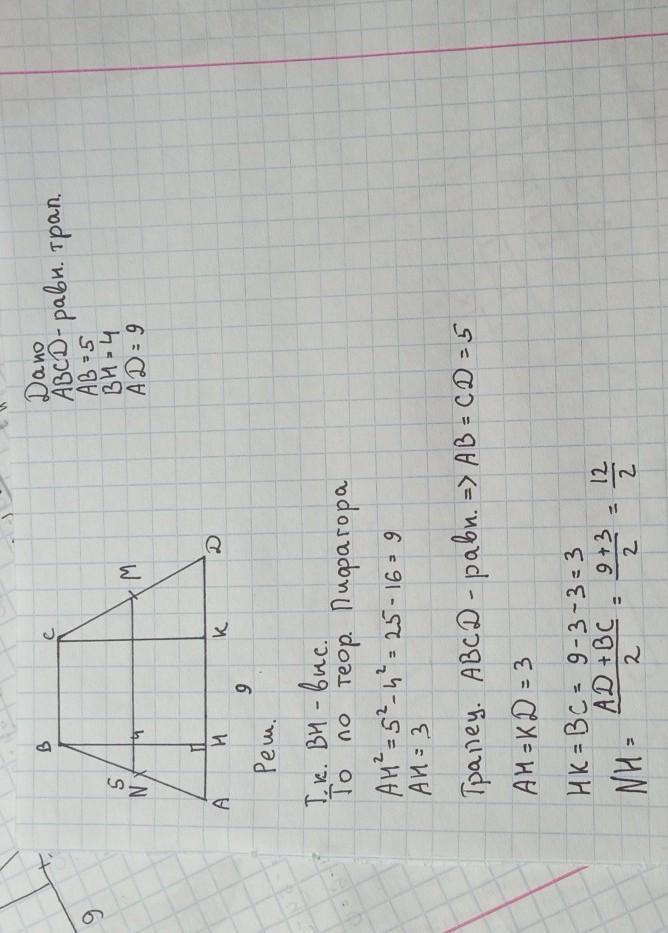 Дано
ABCD - равн. трап.
AB = 5
BH = 4
AD = 9
B
C
5
N
4
M
A
H
K
D
9
Реш.
Т.к. BH - выс.
То по теор. Пифагора
AH² = 5² - 4² = 25 - 16 = 9
AH = 3
Трапец. ABCD - равн. => AB = CD = 5
AH = KD = 3
HK = BC = 9 - 3 - 3 = 3
NH = AD + BC / 2 = 9 + 3 / 2 = 12 / 2
9